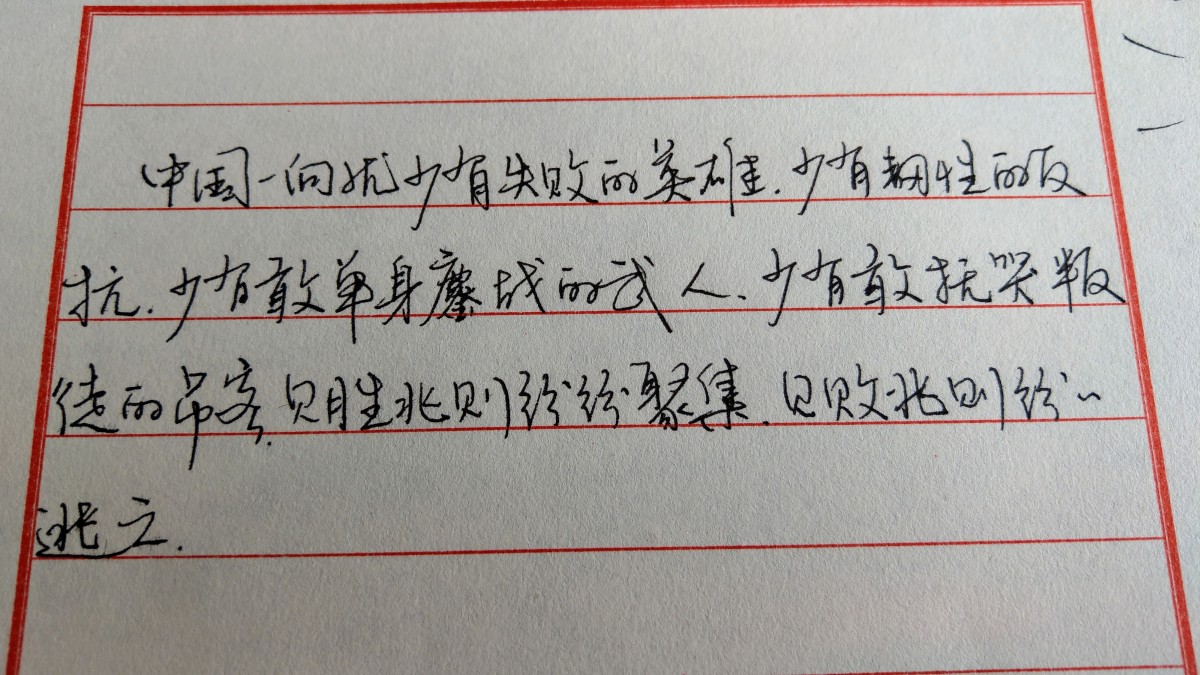 中国一向就少有失败的英雄.少有韧性的反
抗.少有敢单身鏖战的武人.少有敢抚哭叛
徒的吊客.见胜兆则纷纷聚集.见败兆则纷〃
逃亡.